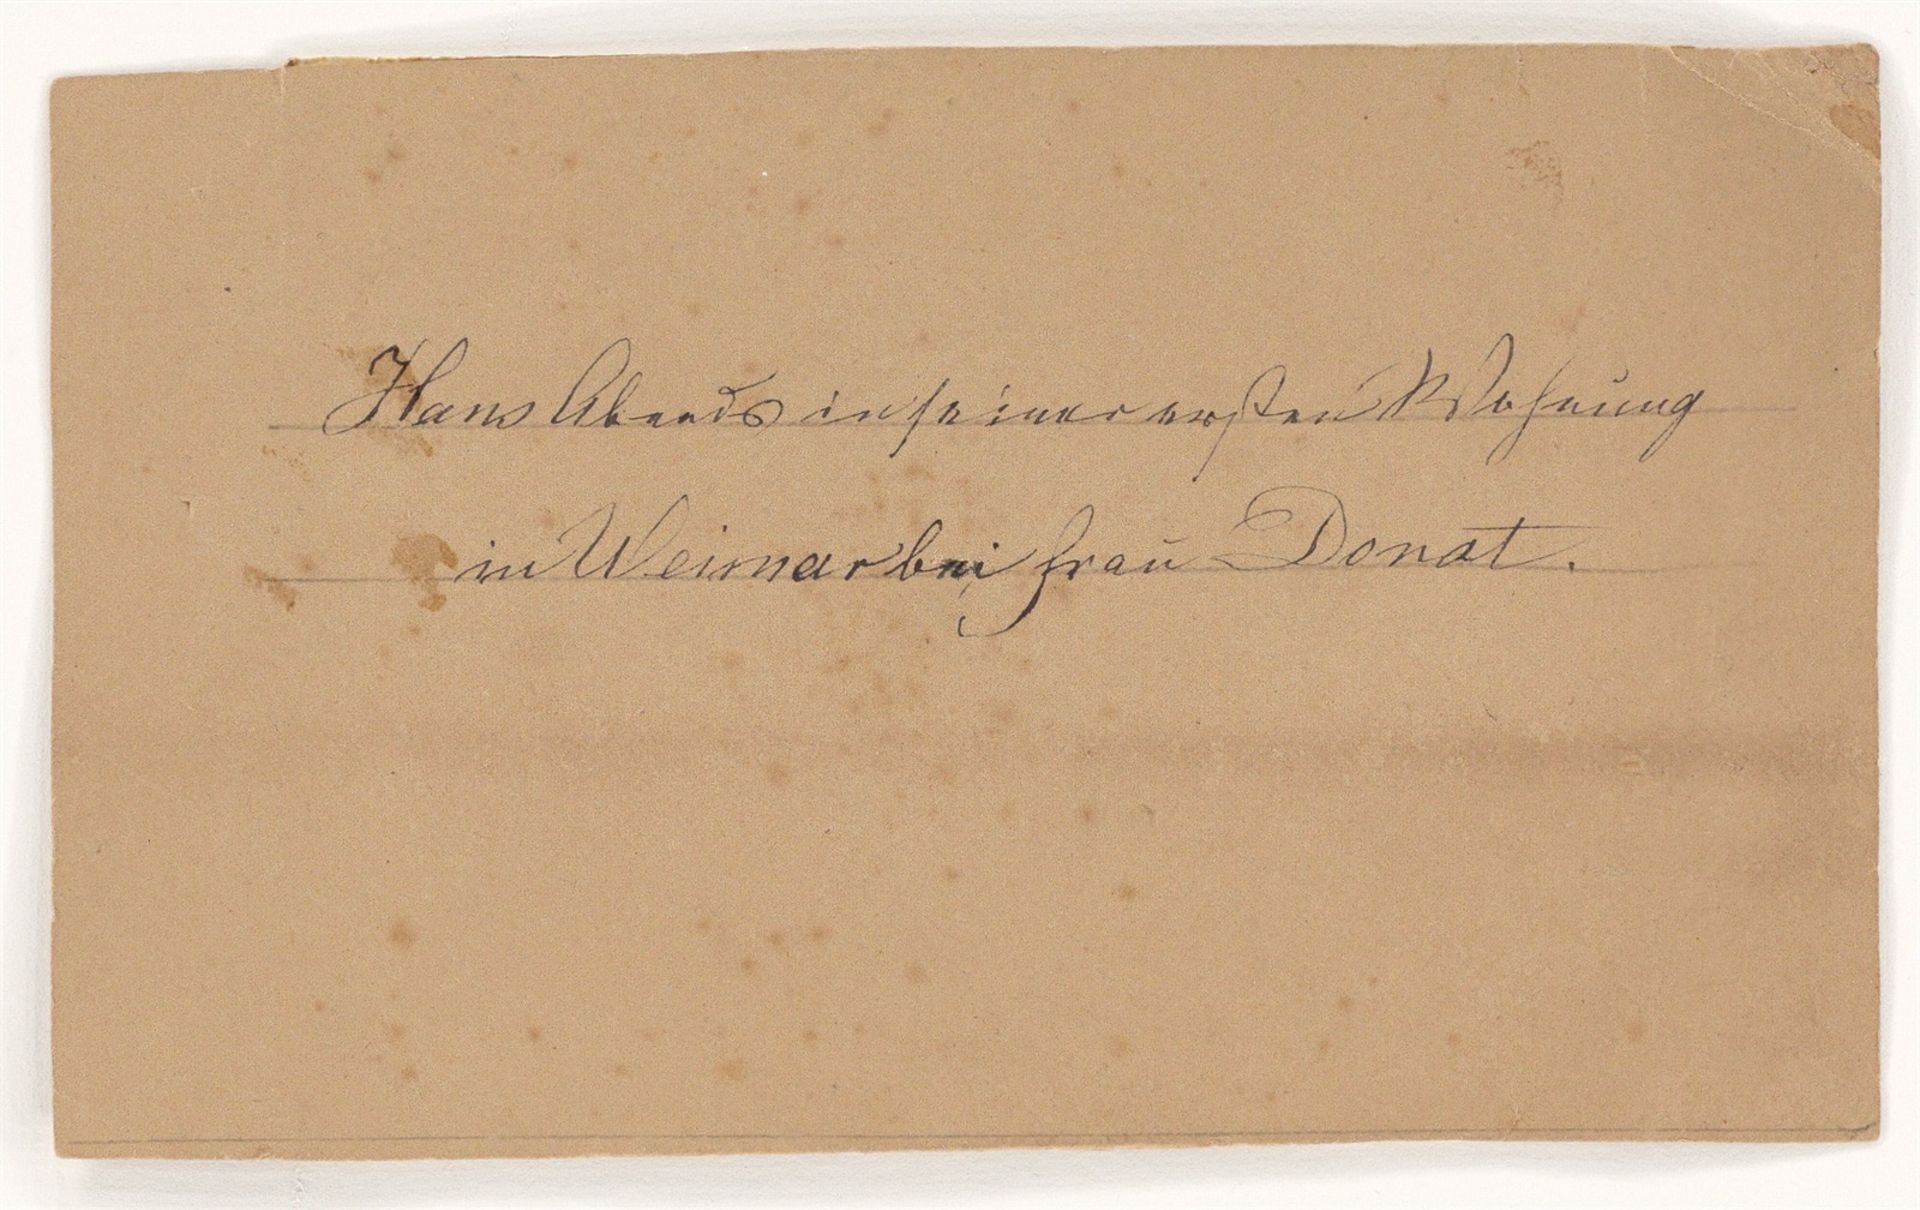 Hans Abends in seiner ersten Wohnung
in Weimar bei Frau Donat.